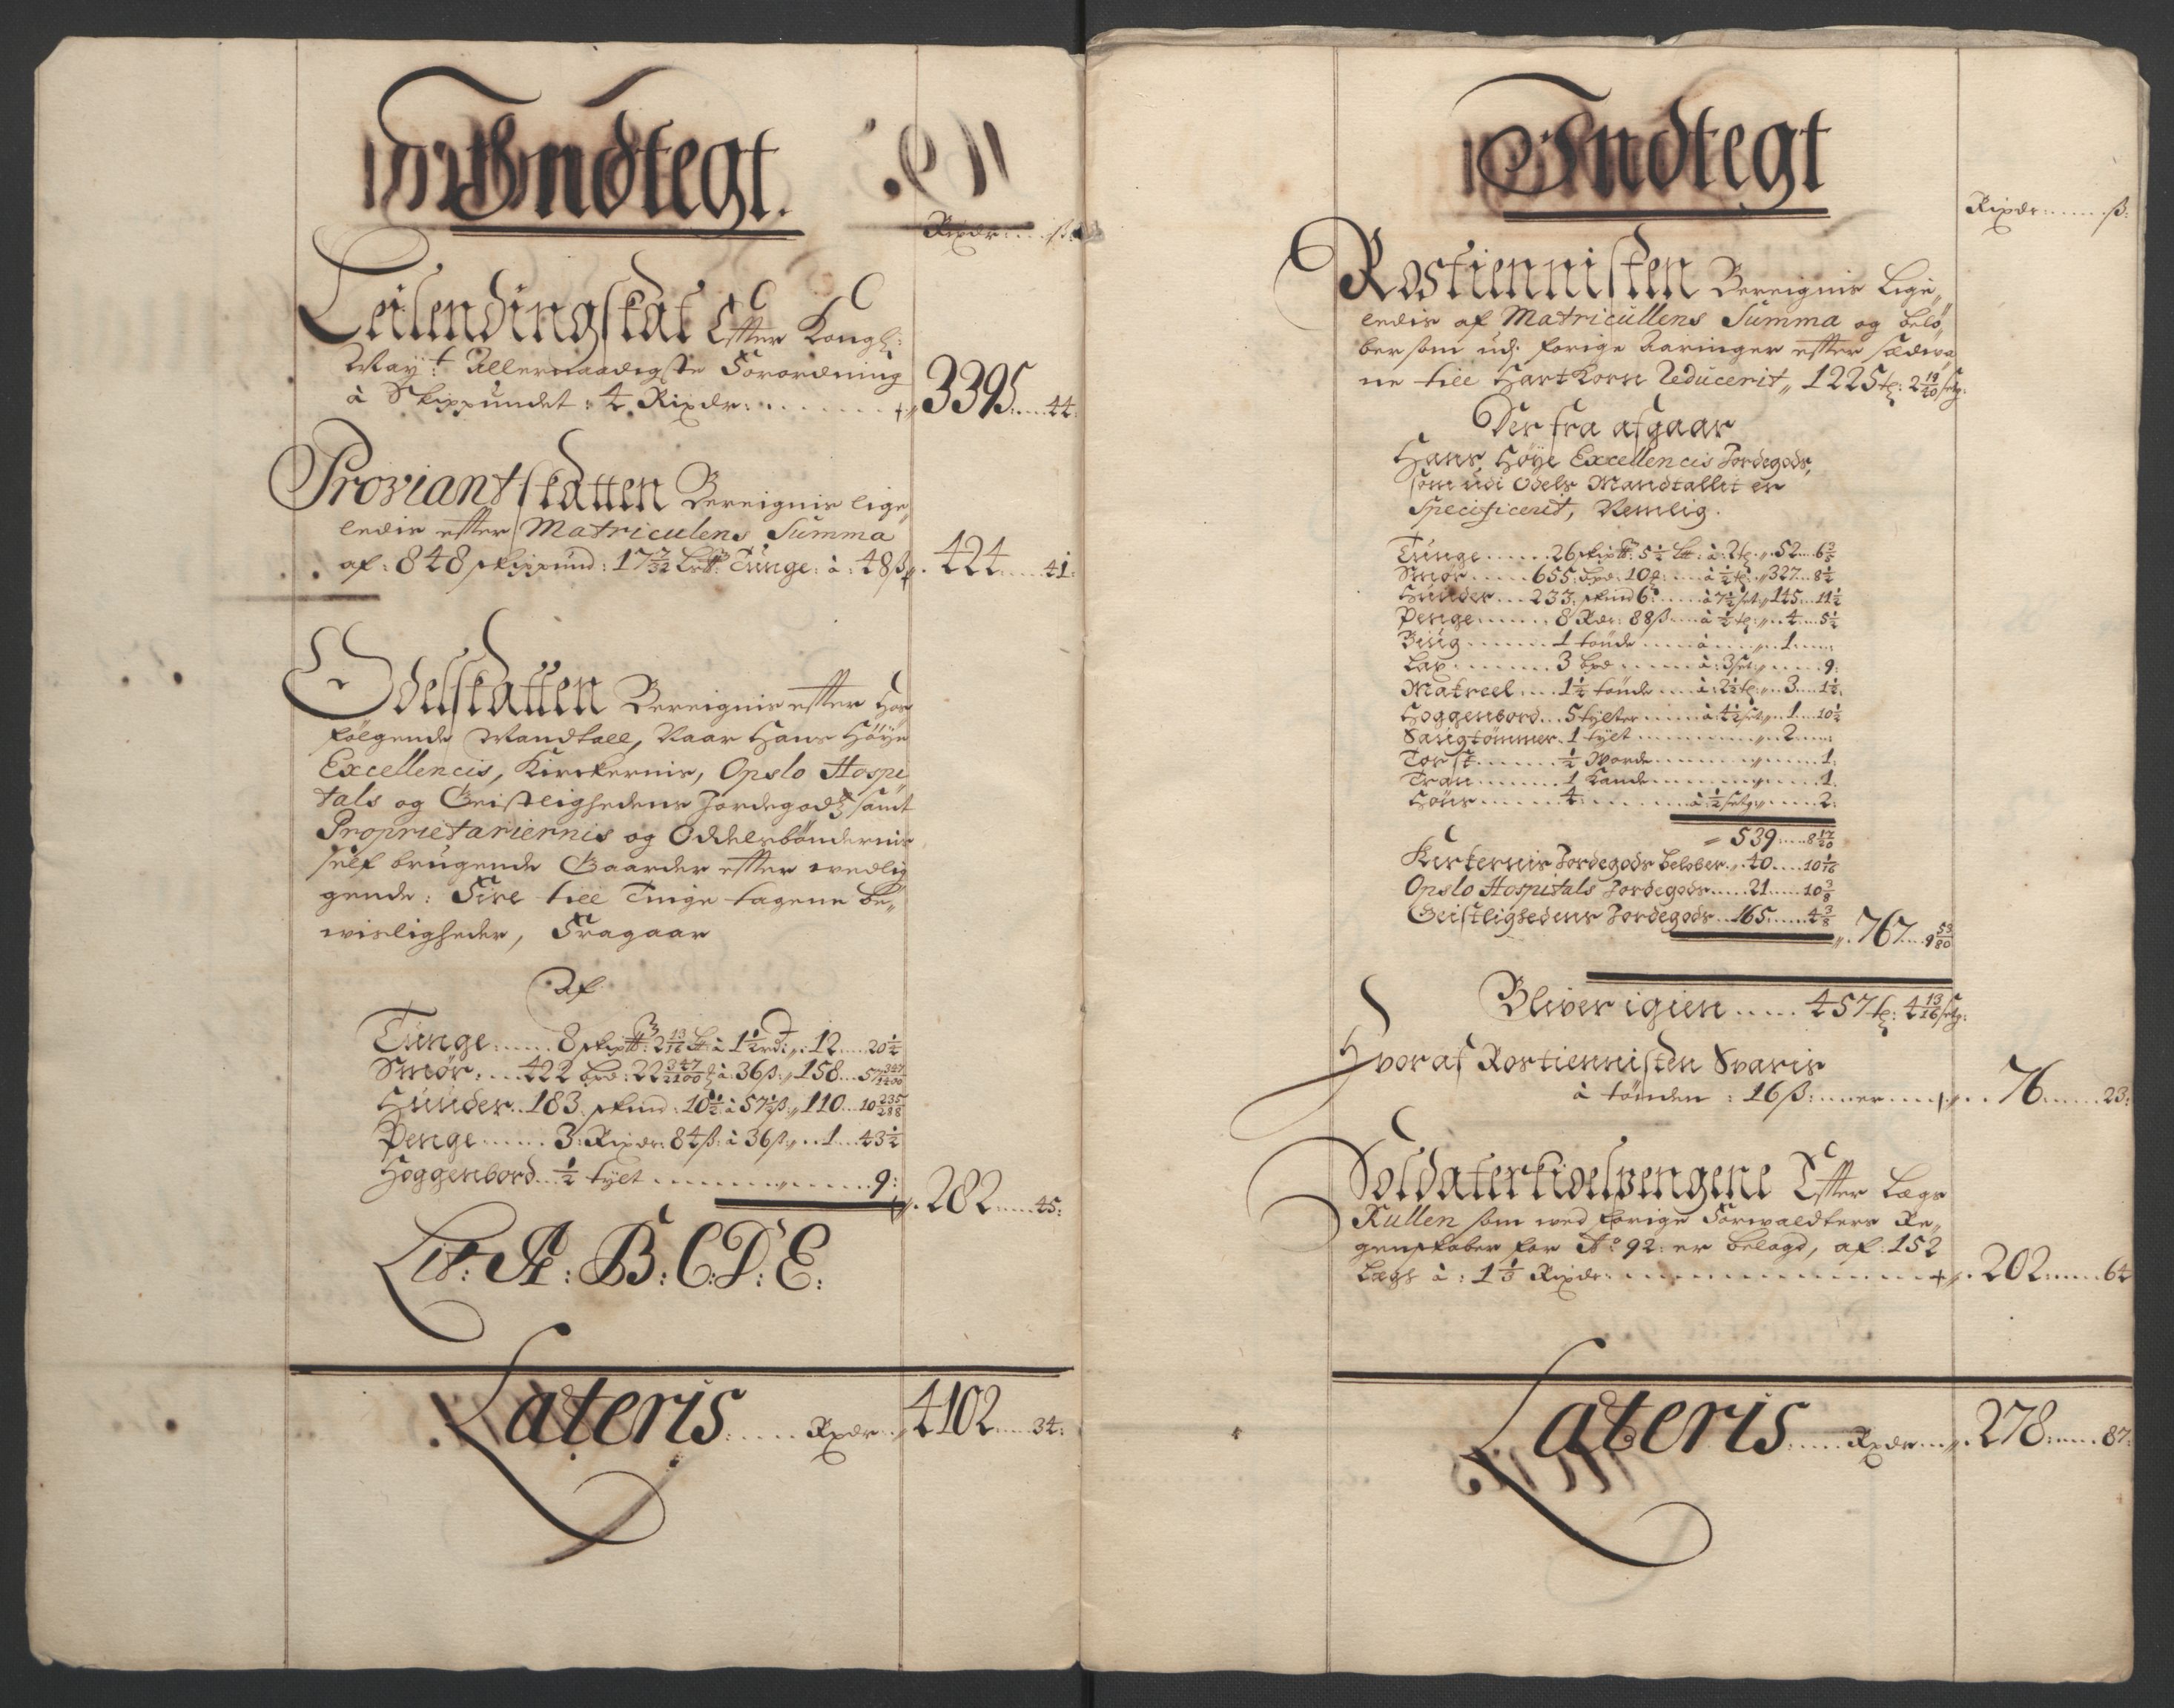 Indtegt.
Rixdr: ß:
Leilendingskat Effter Kongl:
May:t Allernaadigste Forordning
à Skippundet: 4 Rixdr: 3395 44:
Proviantskatten Bereignis lige„
ledis effter Matriculens Summa
af: 848 skippund: 17 7/32 L℔: Tunge: à: 48 ß 424 41:
Odelskatten Bereignis effter Hos
følgende Mandtall, Naar Hans Høÿe
Excellencis, Kirckernis, Opslo Hospi
tals og Geistlighedens Jordegodz samt
Proprietariernis og Oddelsbøndernis
self brugende Gaarder effter wedlig
gende: Fire till Tinge tagene Be„
wisligheder, Fragaar
Af
Tunge 8 skip℔: 2 13/16 L℔ à 1 1/2 rd: 12 20 1/2
Smør: 422 bpd: 22 à 36 ß: 158 57
Huuder 183 skind: 10 1/2 à 57 1/2 ß: 110 10 235/288
Penge 3: Rixdr: 84 ß: à 36 ß 1 43 1/2
Hoggenbord 1/2 tÿlt 9:
282 45:
Lit: A: B: C: D: E:
Lateris Rxdr 4102 34:
Indtegt
Rixdr: ß:
Rostiennisten Bereignis Lige„
ledis af Matricullens Summa og belø„
ber som udj forige Aaringer effter sædwa
ne till HartKorn Reducerit, 1225 tr: 2 19/20 setg:
Der fra afgaar
Hans Høÿe Excellencis Jordegods,
som udi Odels Mandtallit er
Specificerit, Nemlig.
Tunge 26 skip℔: 5 1/2 L℔: à: 2 tr: 52 6 3/5
Smør 655: bpd: 10 à 1/2 tr: 327 8 1/2
Huuder 233: skind 6: à 7 1/2 set: 145 11 1/2
Penge 8 Rdr: 88 ß à 1/2 tr: 4 5 1/2
Biug 1 tønde à 1
Lax 3 bpd à: 3 set: 9:
Matreel 1 1/4 tønde à: 2 1/2 tr: 3 1 1/2
Hoggenbord 5 tÿlter à: 4 1/2 set: 1 10 1/2
Saugtømmer 1 tÿlt 2
Torsk 1/2 Worde 1:
Tran 1 Kande 1:
Høns 4: à: 1/2 setg: 2:
539 8 17/20
Kirkernis Jordegods beløber 40 10 1/16
Opslo Hospitals Jordegods 21 10 3/8
Geistlighedens Jordegods 165 4 3/8 767 9 53/80
Bliver igien 457 tr: 4 13/16 setg:
Hvoraf Rostiennisten Svaris
à tønden: 16 ß: er 76 23:
Soldaterkidelpengene Effter Lægs
Rullen som wed forige Forwaldters Re„
genskaber for A:o 92: er belagd, af: 152
Lægs à: 1 1/3 Rixdr: 202 64
Lateris Rxdr 278 87: